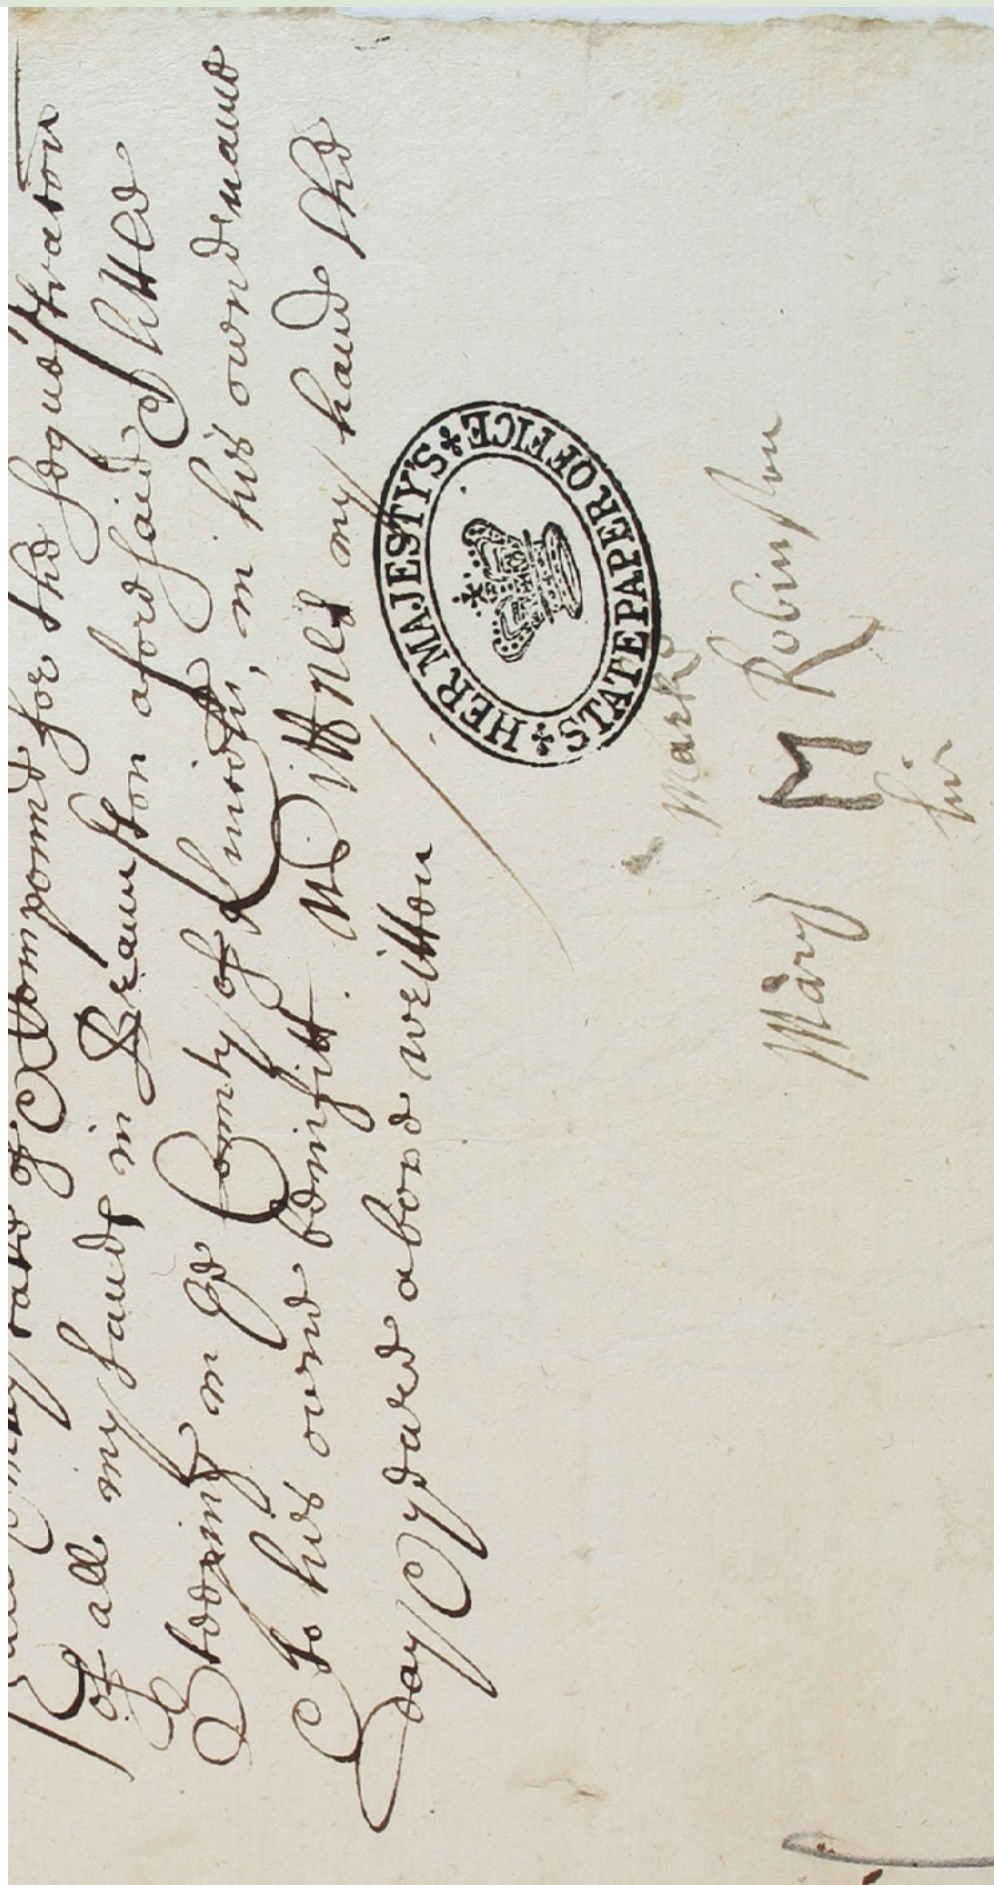 of Compound for the sequestration
of all my lands in Braunston aforesaid
in ye County of Lincoln, in his owne name
To his owne benifitt. Wittnes my hand the
day & yeare above written
HER MAJESTY'S STATE PAPER OFFICE
hir
Mary M Robinson
marke